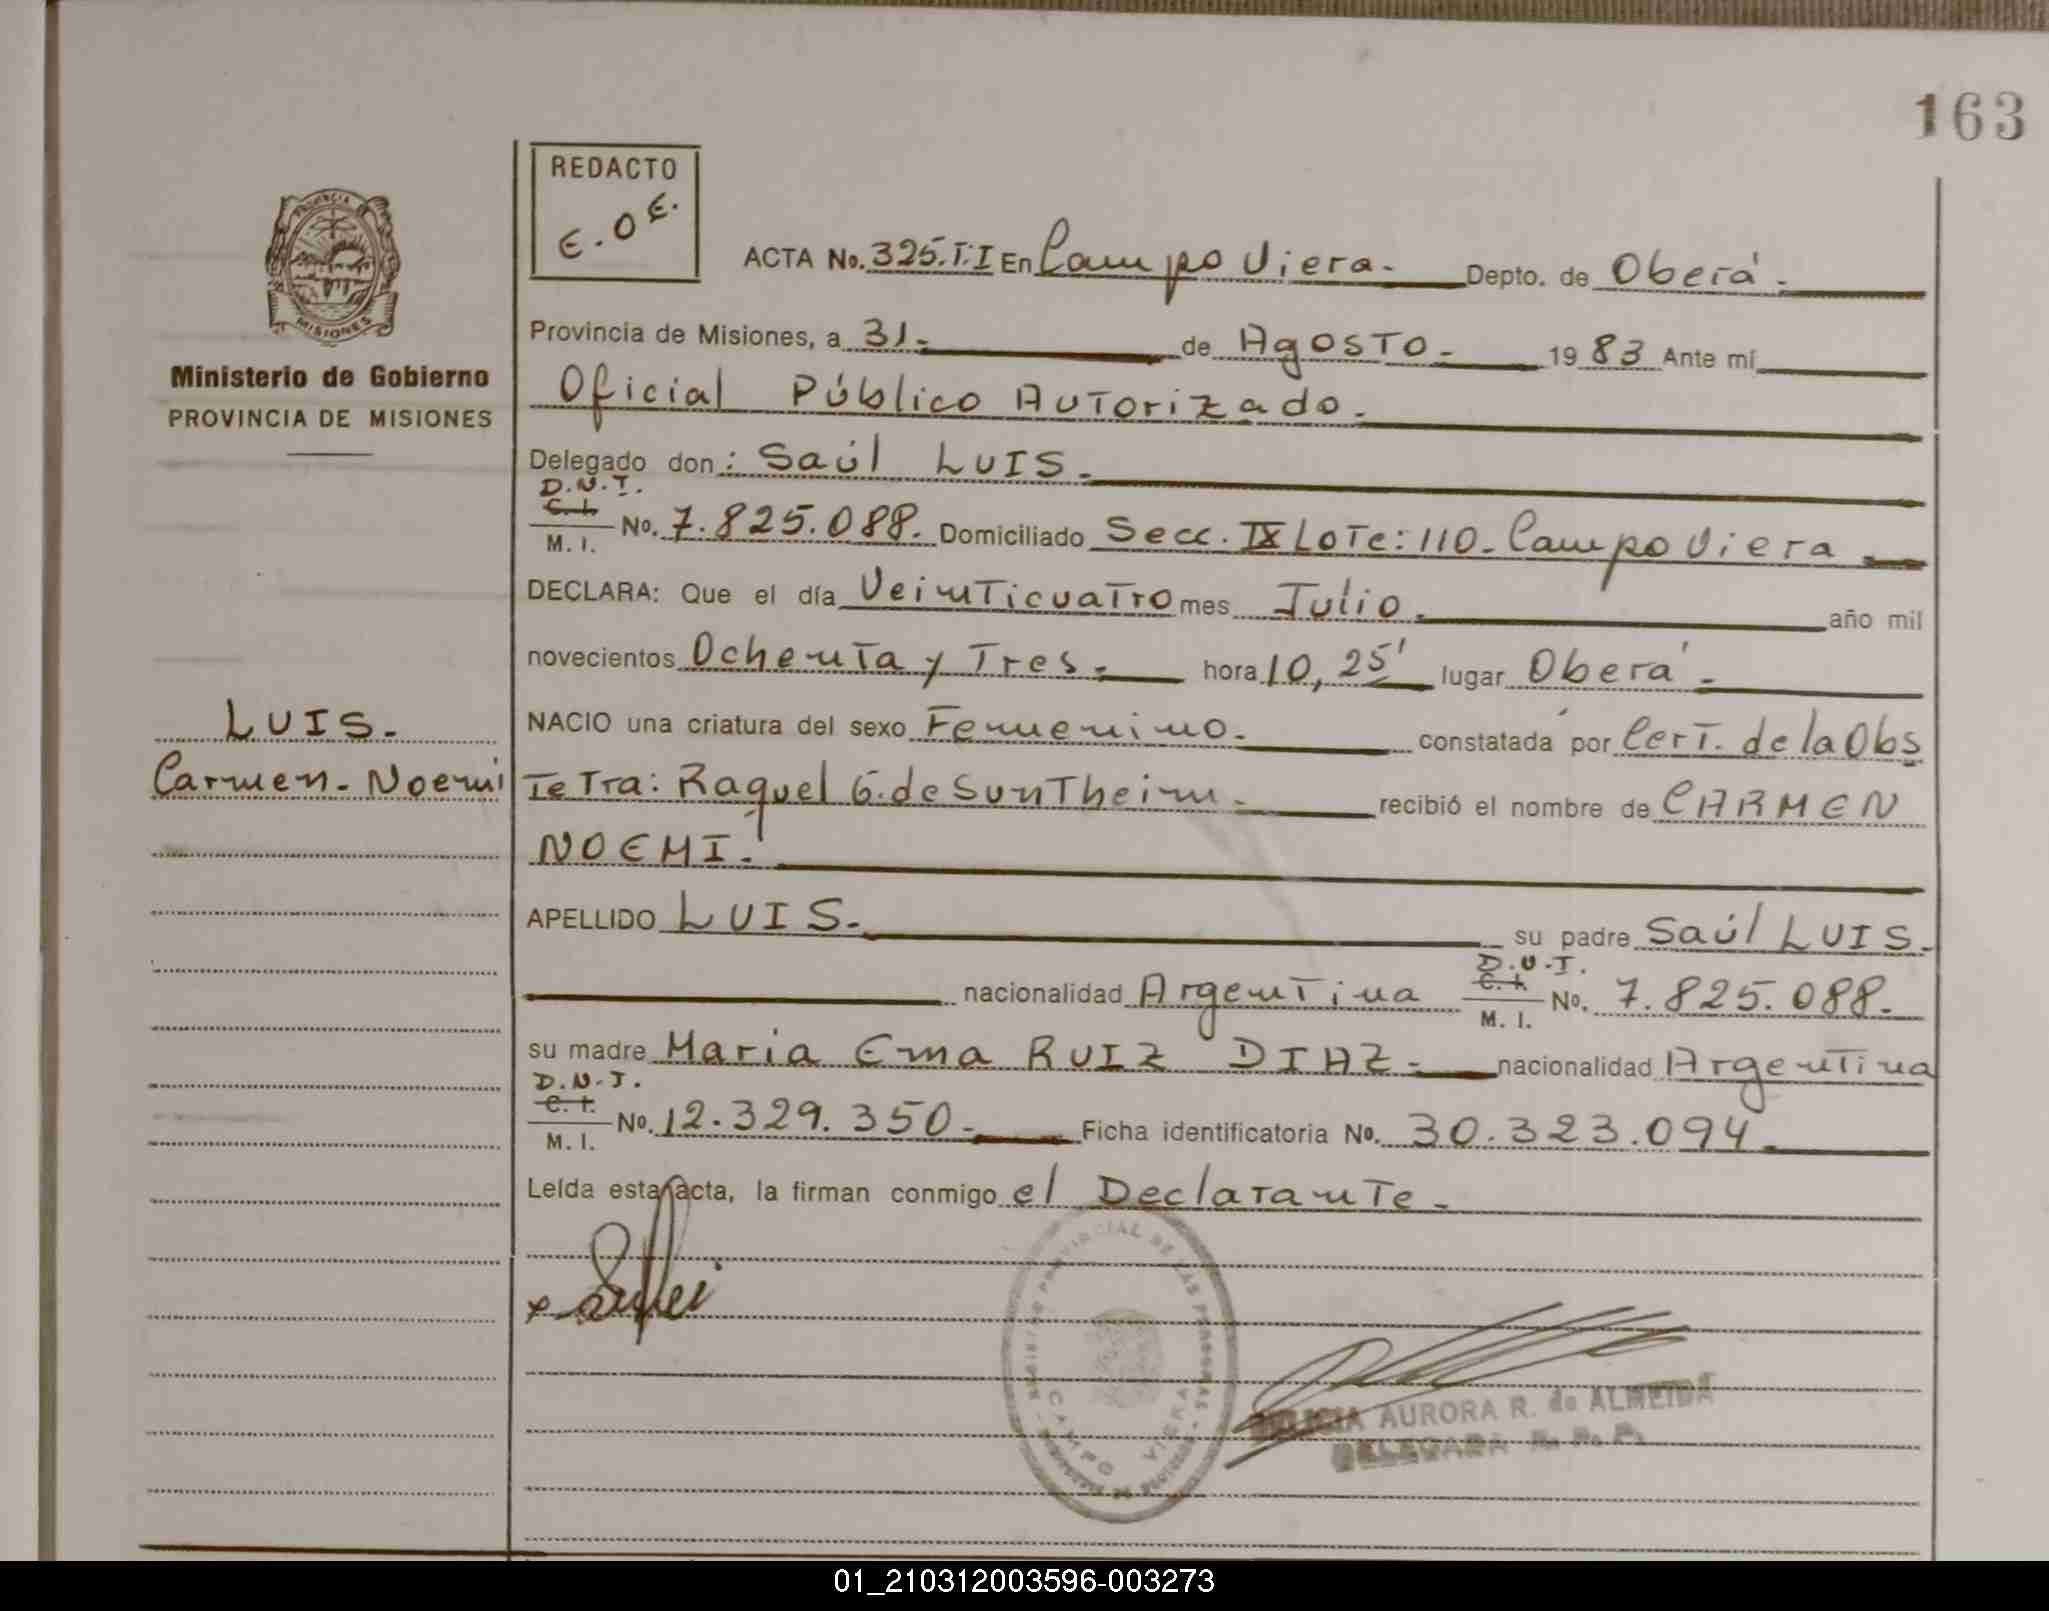 163
REDACTO
E.O E.
PROVINCIA DE
MISIONES
ACTA No. 325.T.I En Campo Viera.- Depto. de Oberá.-
Provincia de Misiones, a 31.- de Agosto.- 1983 Ante mí
Ministerio de Gobierno
PROVINCIA DE MISIONES
Oficial Público Autorizado.
Delegado don: Saúl LUIS.
D.N.I.
C. I.
M. I.
No. 7.825.088. Domiciliado Secc. IX Lote: 110- Campo Viera
DECLARA: Que el día Veinticuatro mes Julio. año mil
novecientos Ochenta y Tres.- hora 10,25' lugar Oberá.-
LUIS.-
Carmen-Noemi
NACIO una criatura del sexo Femenino.- constatada por Cert. de la Obs
tetra: Raquel G. de Suntheim.- recibió el nombre de CARMEN
NOEMI.-
APELLIDO LUIS.- su padre Saúl LUIS.-
nacionalidad Argentina
D.N.I.
C. I.
M. I.
No. 7.825.088.-
su madre Maria Ema RUIZ DIAZ.- nacionalidad Argentina
D.N.I.
C. I.
M. I.
No. 12.329.350.- Ficha identificatoria No. 30.323.094.
Leída esta acta, la firman conmigo el Declarante.-
REGISTRO PROVINCIAL DE LAS PERSONAS
CAMPO VIERA
AURORA R. de ALMEIDA
DELEGADA R. P. P.
01_210312003596-003273